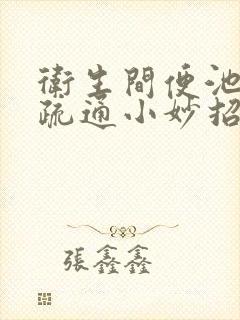 衛生間便池
疏通小妙招
張鑫鑫